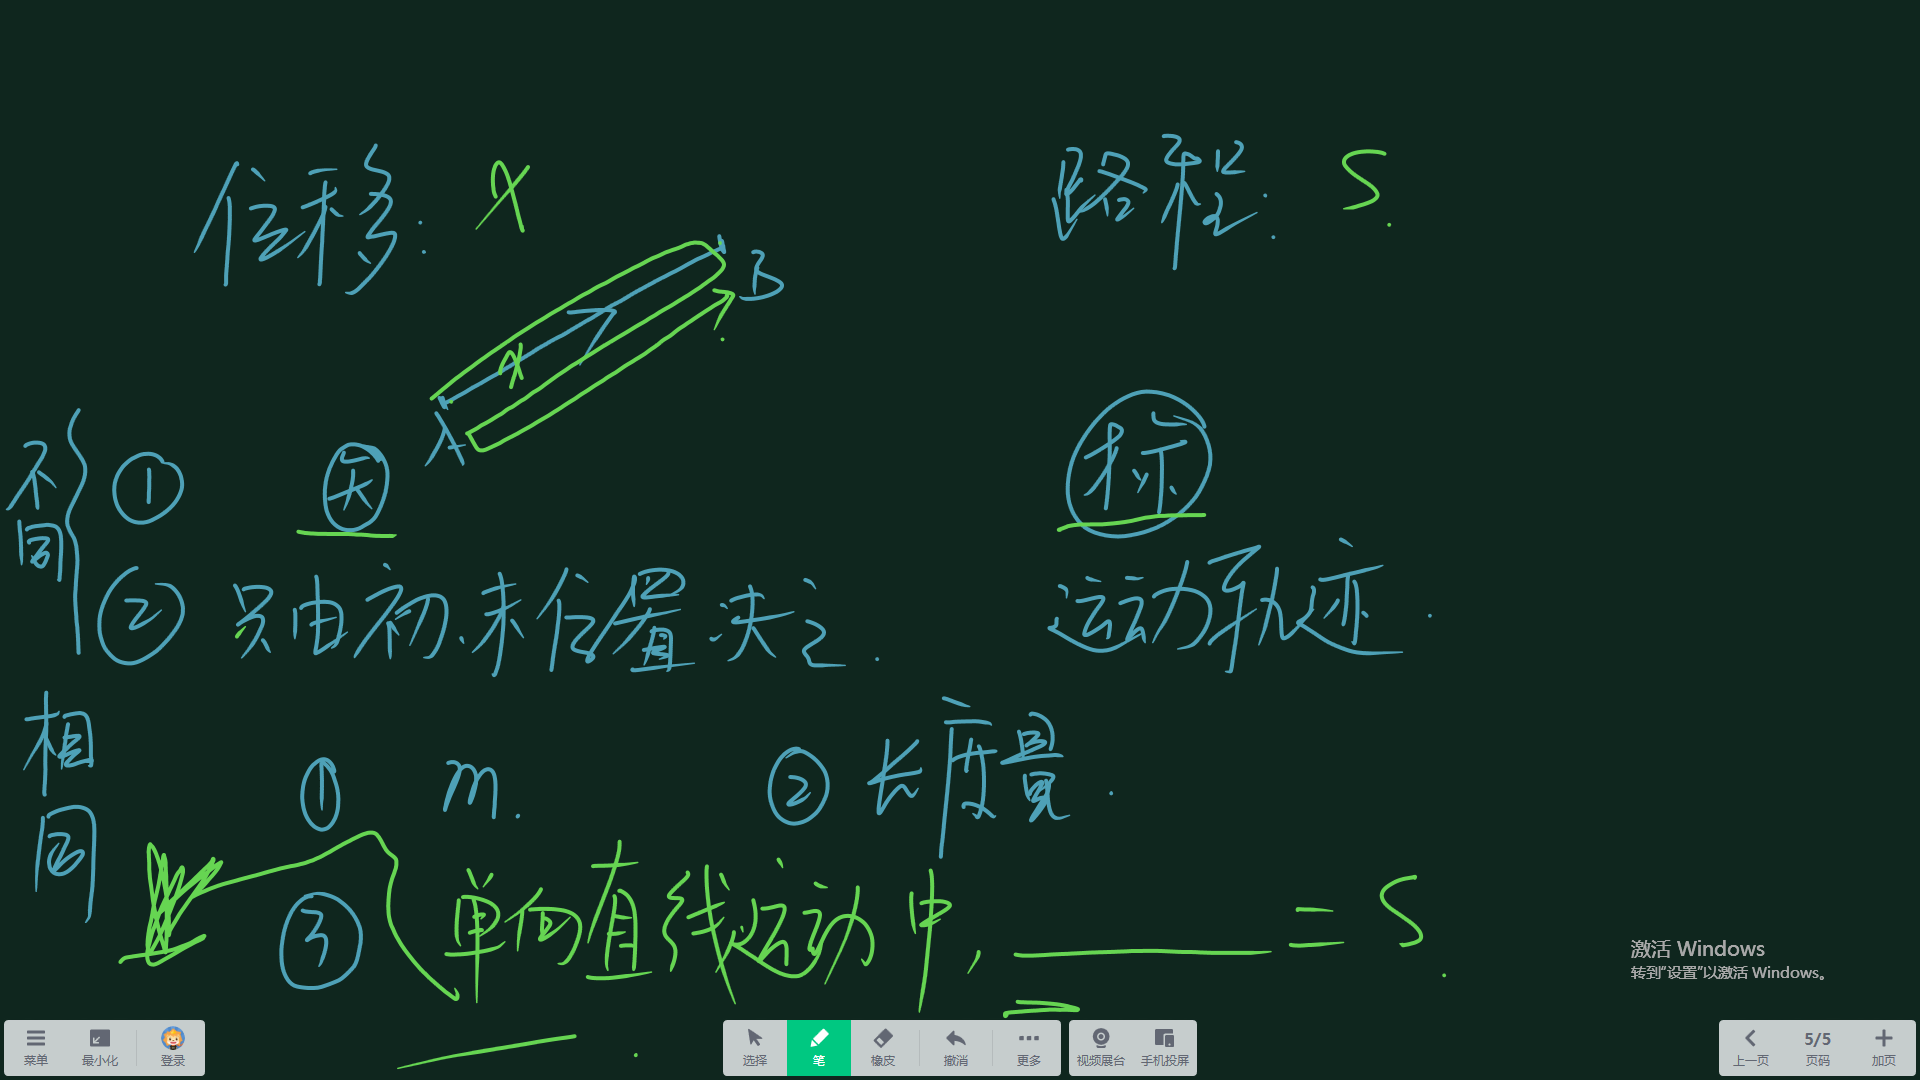 位移: x
路程: S.
x
A
B
不同
① 矢 标
② 只由初、末位置决定. 运动轨迹.
相同
① m. ② 长度量.
③ 单向直线运动中, = S.
激活 Windows
转到“设置”以激活 Windows。
菜单 最小化 登录 选择 笔 橡皮 撤消 更多 视频展台 手机投屏 上一页 5/5 页码 加页